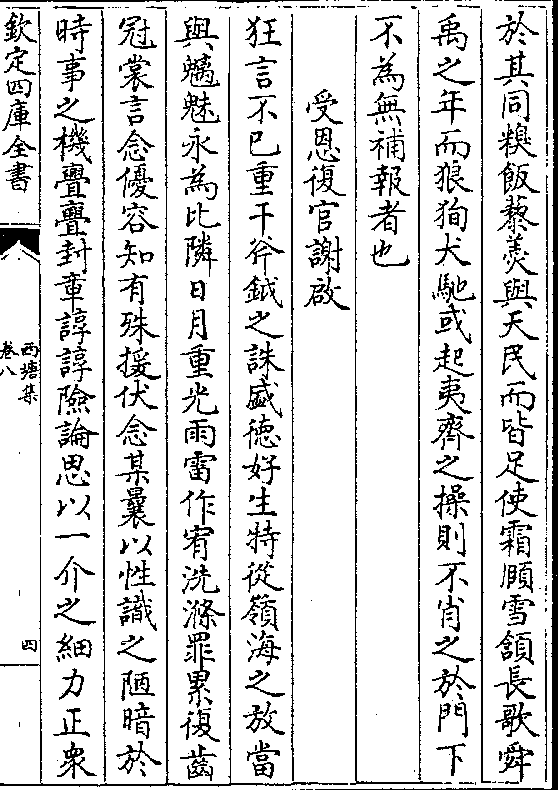 於其同糗飯藜羮與天民而皆足使霜顱雪頷長歌舜
禹之年而狼狥犬馳或起夷齊之操則不肖之於門下
不為無補報者也
受恩復官謝啟
狂言不已重干斧鉞之誅盛徳好生特從嶺海之放當
與魑魅永為比隣日月重光雨雷作宥洗滌罪累復齒
冠裳言念優容知有殊援伏念某曩以性識之陋暗於
時事之機亹亹封章諄諄險論思以一介之細力正衆
欽定四庫全書
西塘集
卷八
四